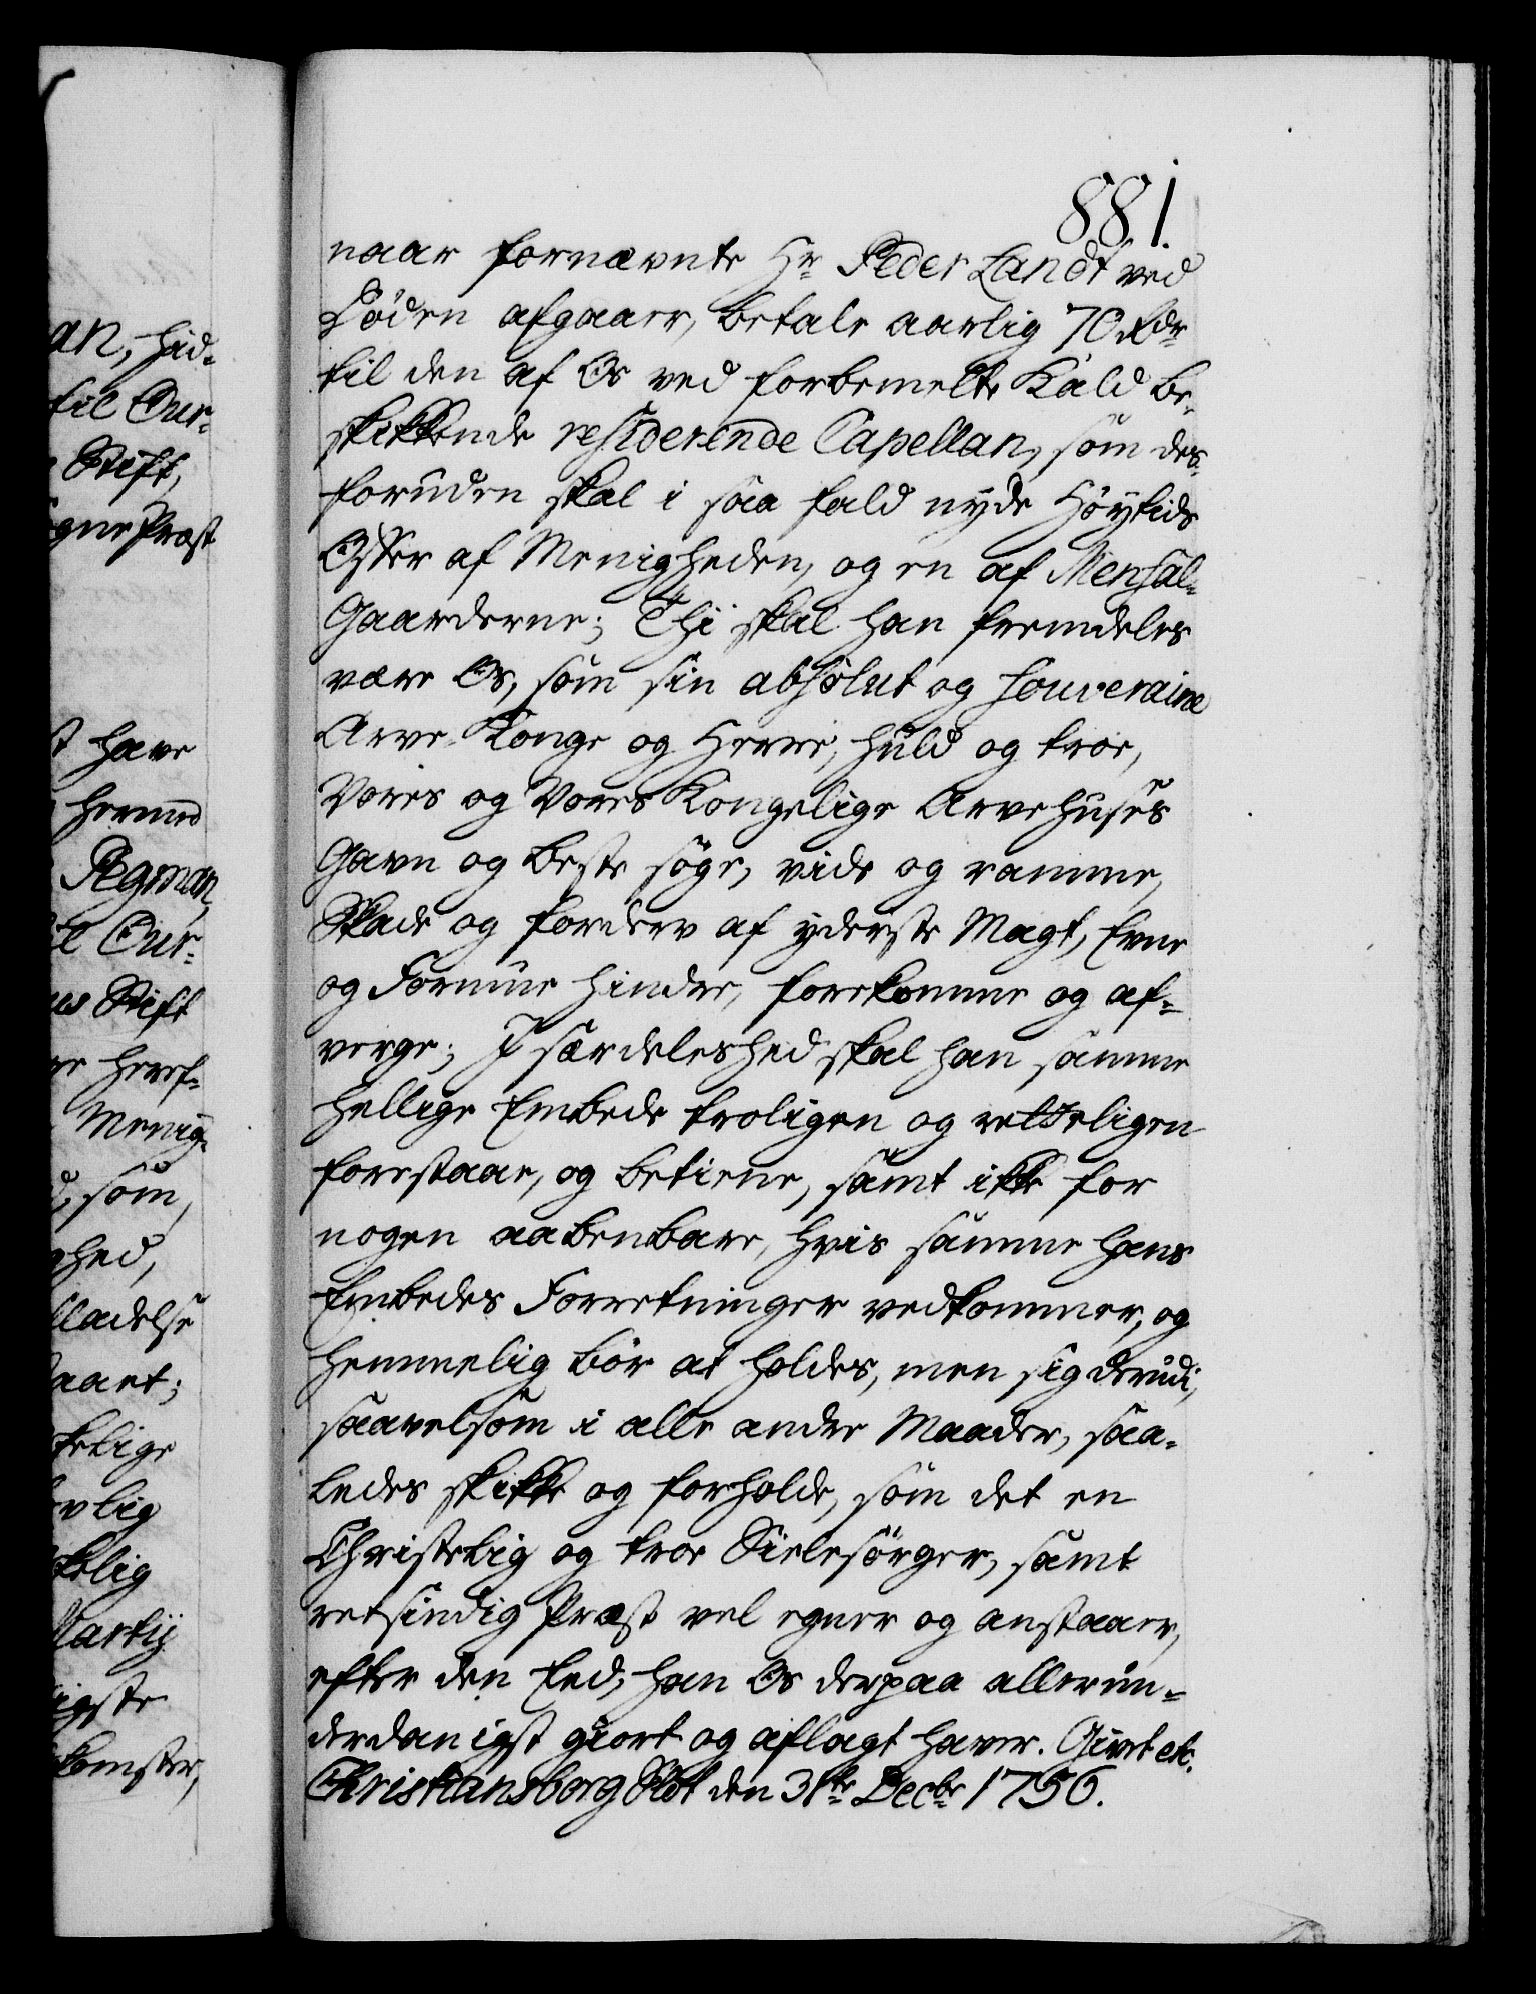 881.
naar fornævnte Hr Peder Landt ved
Döden afgaaer, betale aarlig 70 Rdr
til den af Os ved forbemelte Kald be-
skikkende residerende Capellan, som des-
foruden skal i saa fald nyde Höytids
Offer af Menigheden, og en af Mensal-
Gaarderne; Thi skal han fremdeles
være Os, som sin absolut og souveraine
Arve-Konge og Herre, huld og troe,
Vores og Vores Kongelige Arvehuses
Gavn og beste söge, vide og ramme,
Skade og forderv af yderste Magt, Evne
og Formue hindre, forekomme og af-
verge; I særdeleshed skal han samme
hellige Embede troligen og retteligen
forestaae, og betiene, samt ikke for
nogen aabenbare, hvis samme hans
Embedes Forretninger vedkommer, og
hemmelig bör at holdes, men sig derudi,
saavelsom i alle andre Maader, saa-
ledes skikke og forholde, som det en
Christelig og troe Sielesörger, samt
retsindig Præst vel egner og anstaaer,
efter den Eed, han Os derpaa allerun-
derdanigst giort og aflagt haver. Givet etc.
Christiansborg Slot den 31te Decbr 1756.
an, hid-
til Our-
Stift,
ogne Præst
have
hermed
Pegman,
til Our-
Stift
Menig-
som,
ghed,
lladelse
aaet;
telige
vlig
kelig
Martij
igste
komster,